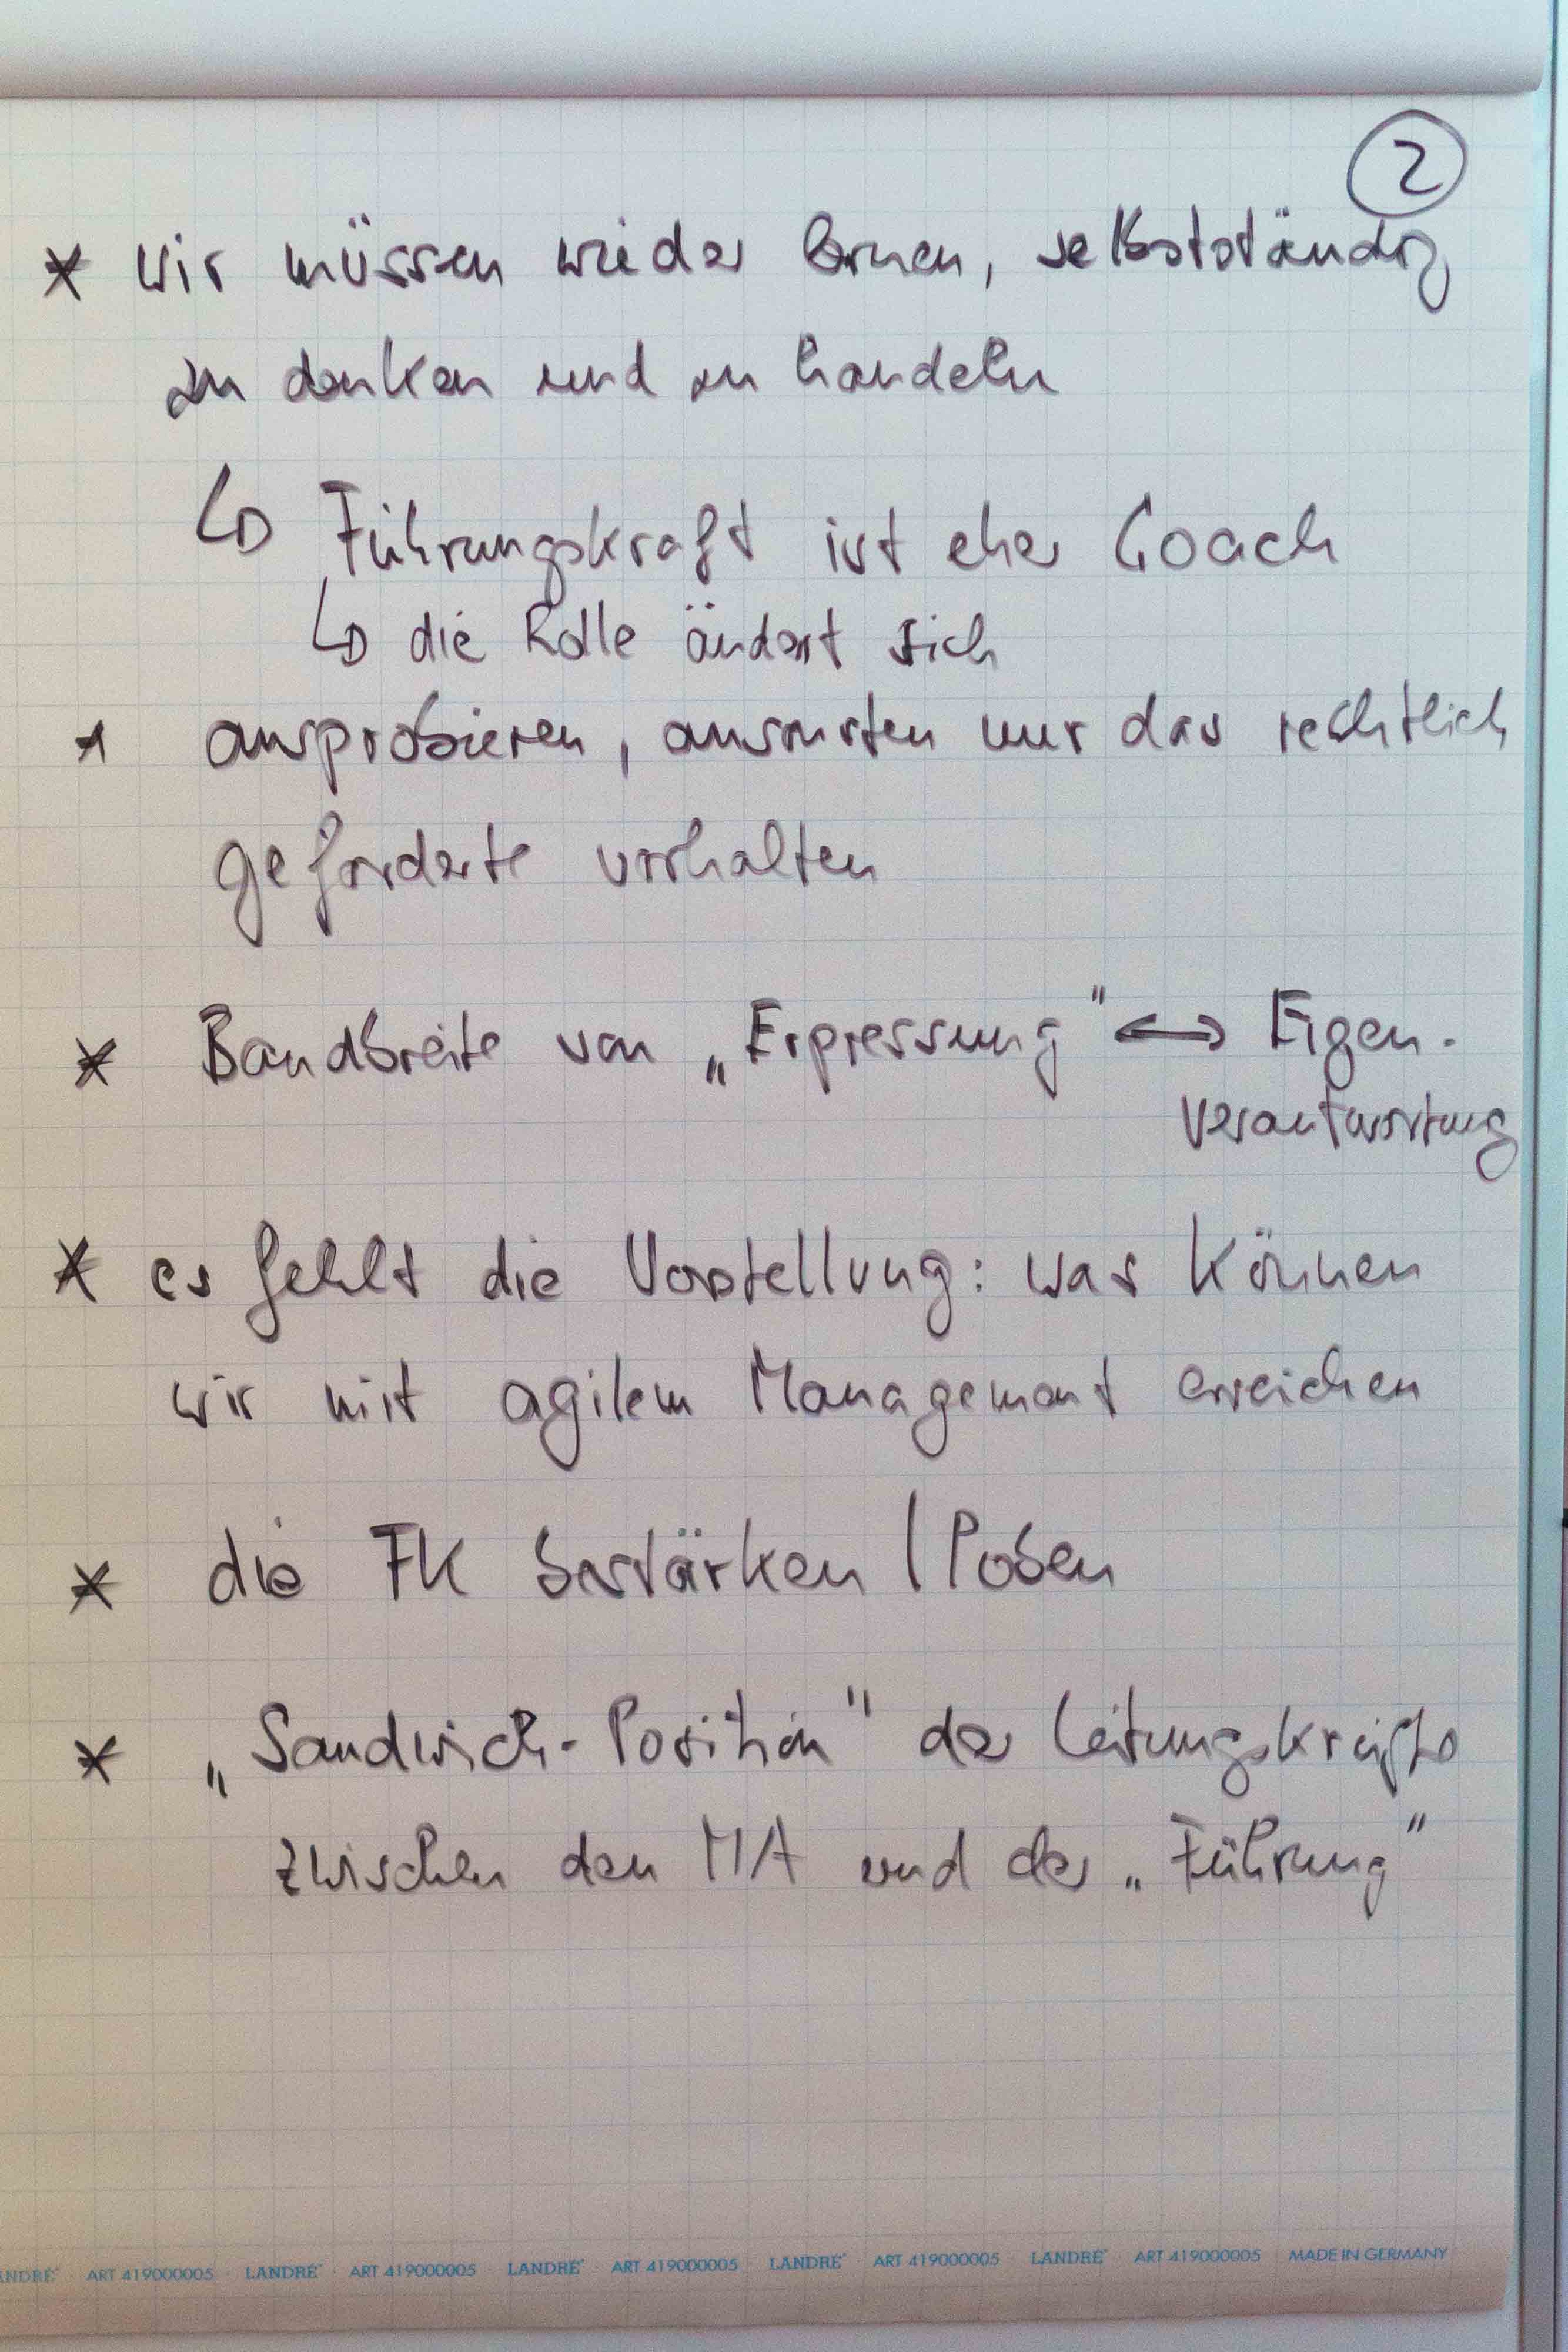 2
* wir müssen wieder lernen, selbstständig
zu denken und zu handeln
↳ Führungskraft ist eher Coach
↳ die Rolle ändert sich
* ausprobieren, ansonsten nur das rechtlich
geforderte vorhalten
* Bandbreite von „Erpressung" ↔ Eigen-
verantwortung
* es fehlt die Vorstellung: was können
wir mit agilem Management erreichen
* die FK bestärken / loben
* „Sandwich-Position" der Leitungskräfte
zwischen den MA und der „Führung"
LANDRÉ ART 419000005 LANDRÉ ART 419000005 LANDRÉ ART 419000005 LANDRÉ ART 419000005 LANDRÉ ART 419000005 MADE IN GERMANY